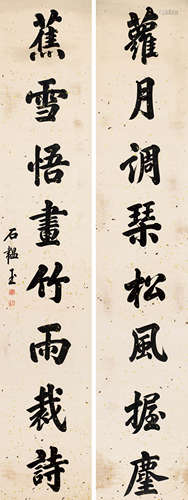 蘿月調琹松風握麈
蕉雪悟畫竹雨裁詩
石韞玉